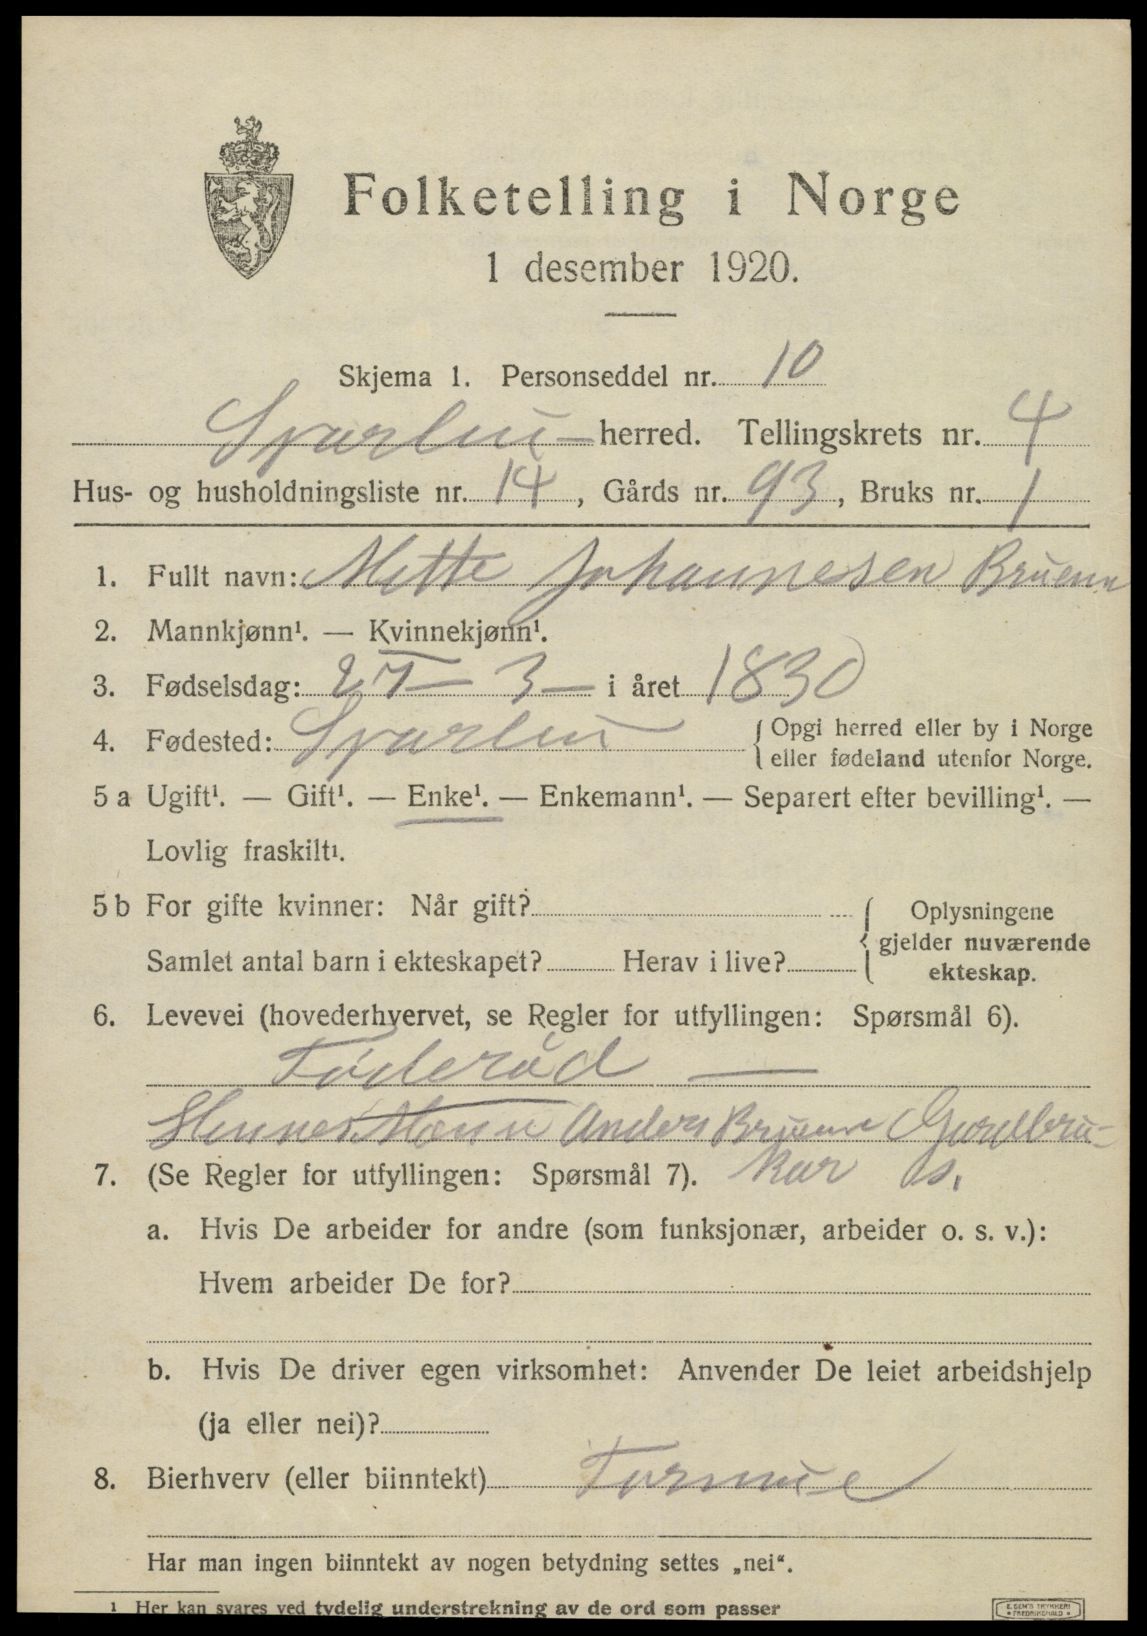 Folketelling i Norge
1 desember 1920.
Skjema 1. Personseddel nr. 10
Svarlui herred. Tellingskrets nr. 4
Hus- og husholdningsliste nr. 14, Gårds nr. 93, Bruks nr. 1
1. Fullt navn: Mette Johannesen Bruenn
2. Mannkjønn¹. — Kvinnekjønn¹.
3. Fødselsdag: 27 — 3 — i året 1830
4. Fødested: { Opgi herred eller by i Norge
{ eller fødeland utenfor Norge.
5 a Ugift¹. — Gift¹. — Enke¹. — Enkemann¹. — Separert efter bevilling¹. —
Lovlig fraskilt¹.
5 b For gifte kvinner: Når gift? { Oplysningene
gjelder nuværende
Samlet antal barn i ekteskapet? Herav i live? ekteskap.
6. Levevei (hovederhvervet, se Regler for utfyllingen: Spørsmål 6).
Føderåd —
Hennes Mann Anders Bruenn Gardbru-
7. (Se Regler for utfyllingen: Spørsmål 7). kar s.
a. Hvis De arbeider for andre (som funksjonær, arbeider o. s. v.):
Hvem arbeider De for?
b. Hvis De driver egen virksomhet: Anvender De leiet arbeidshjelp
(ja eller nei)?
8. Bierhverv (eller biinntekt) Formue
Har man ingen biinntekt av nogen betydning settes „nei“.
¹ Her kan svares ved tydelig understrekning av de ord som passer
E. SEM'S TRYKKERI
• FREDRIKSHALD •